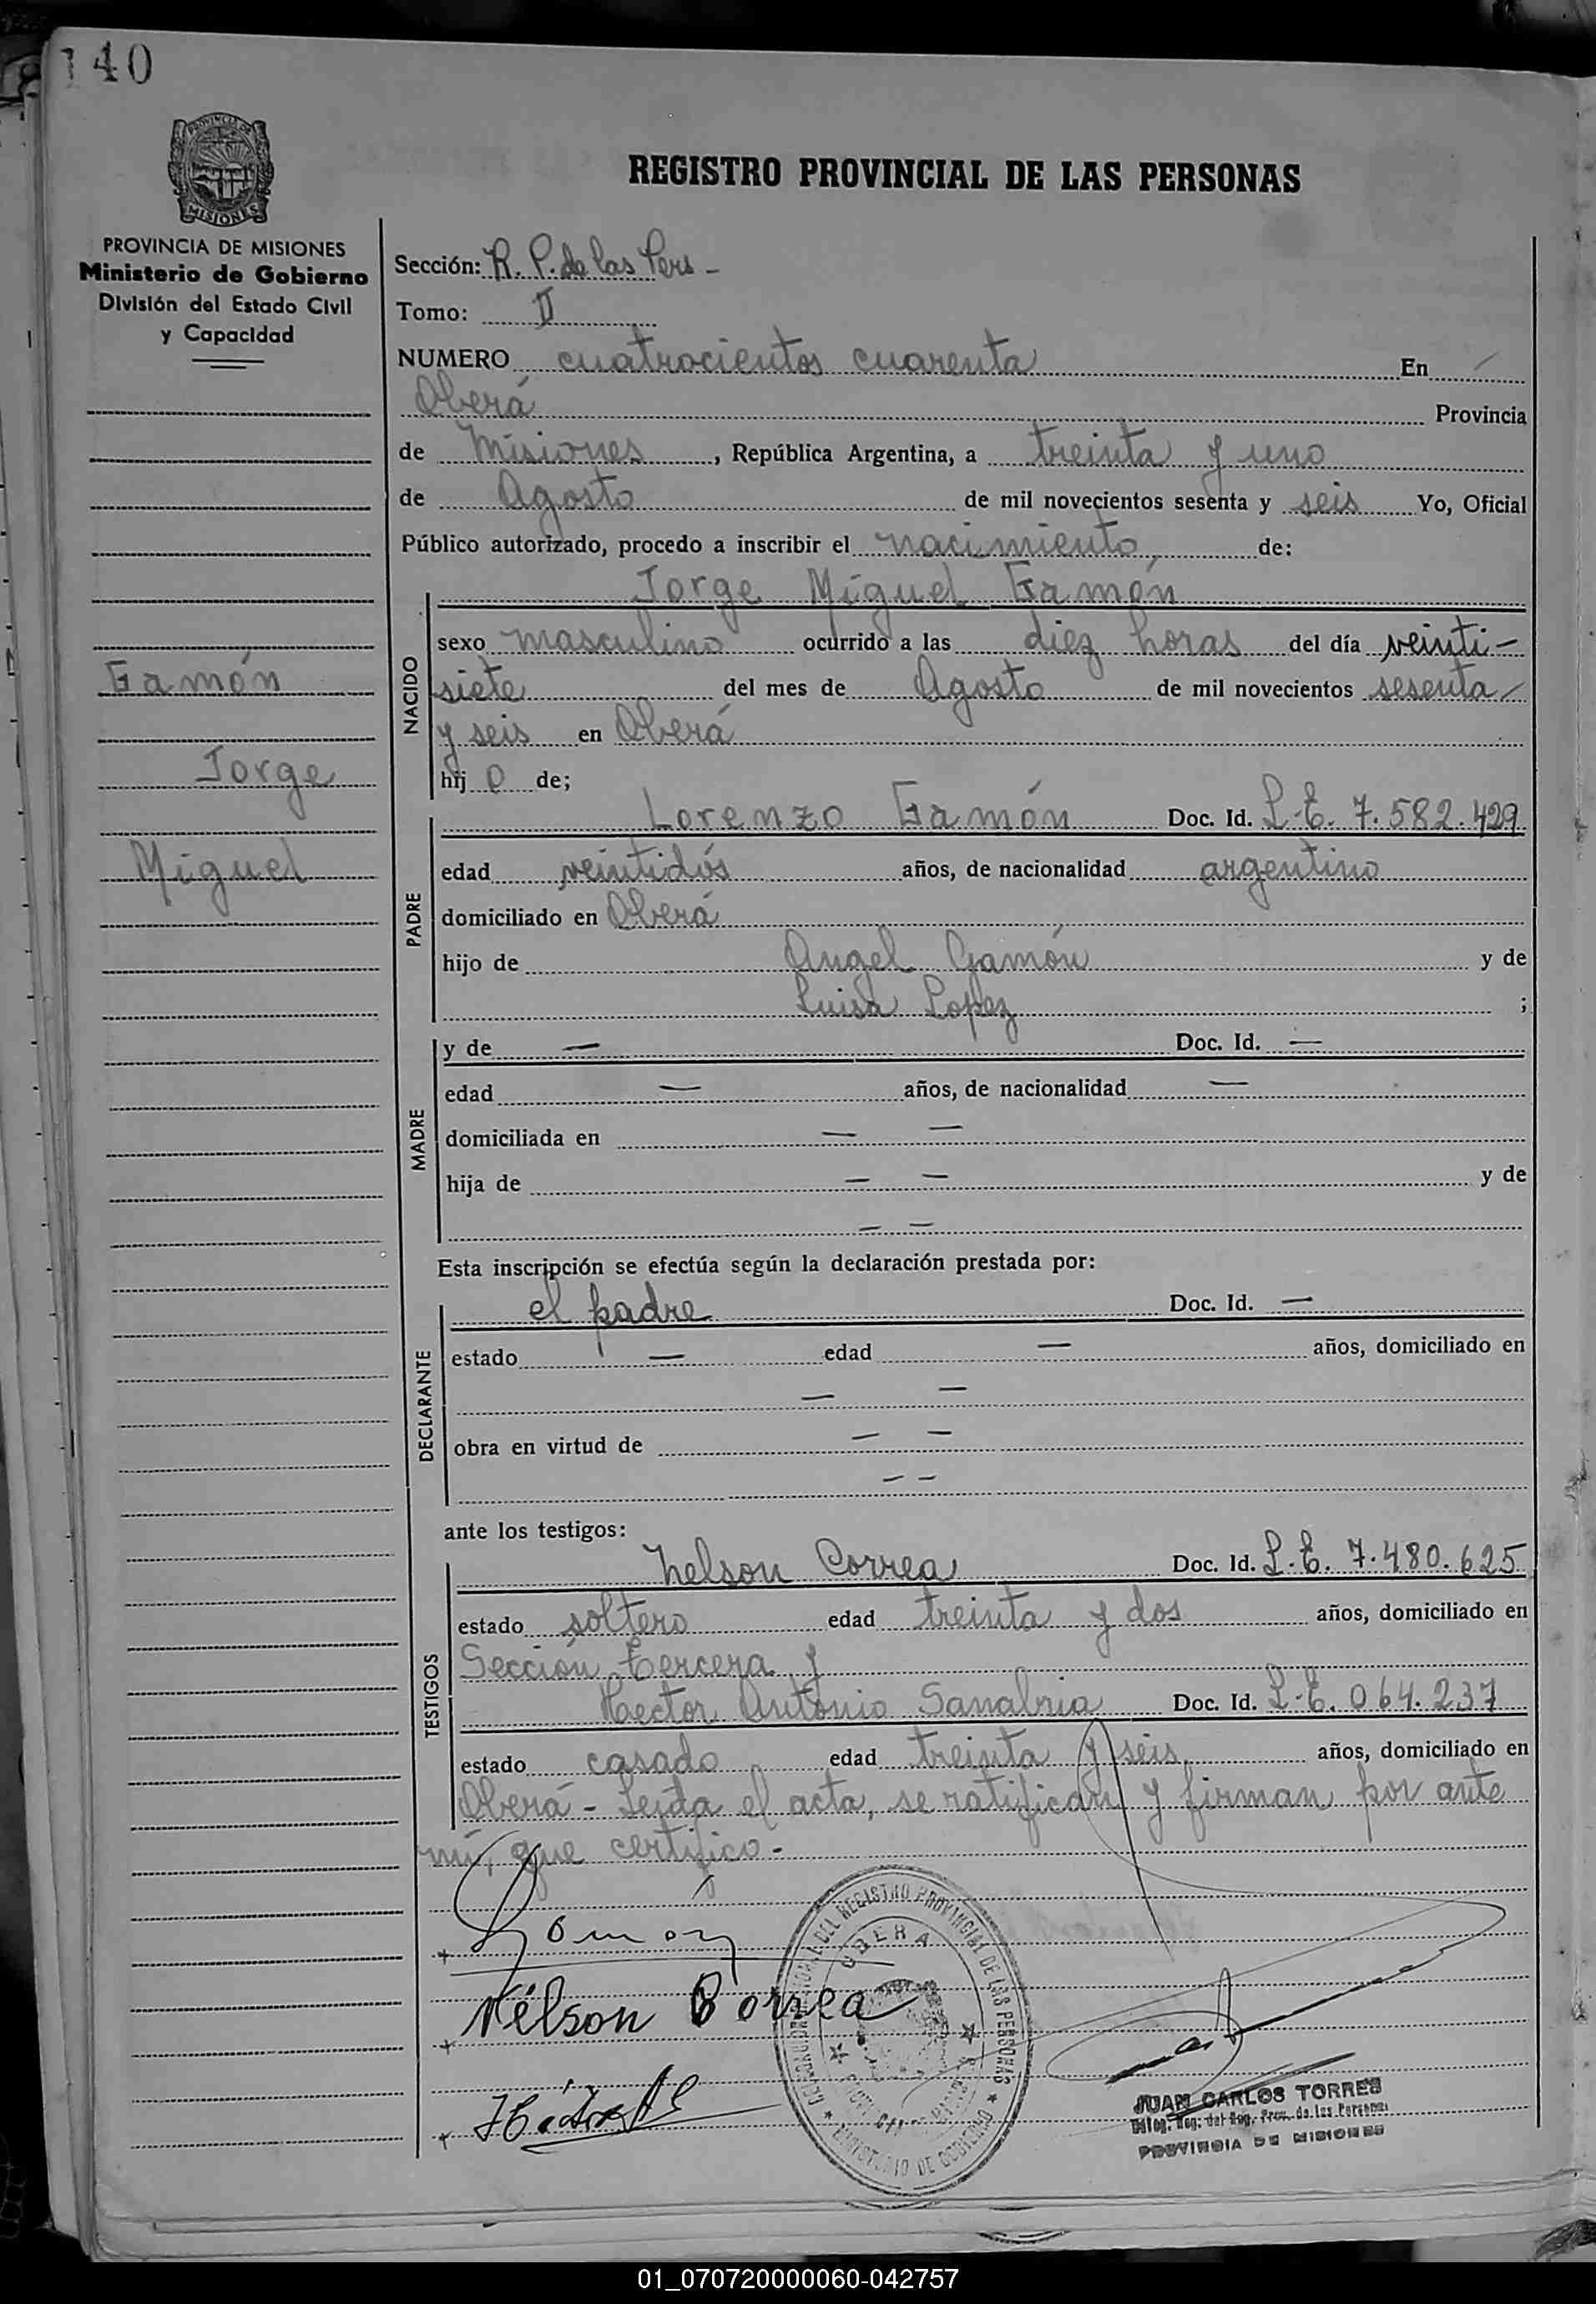 140
PROVINCIA DE
MISIONES
REGISTRO PROVINCIAL DE LAS PERSONAS
PROVINCIA DE MISIONES
Ministerio de Gobierno
División del Estado Civil
y Capacidad
Sección: R. P. de las Pers -
Tomo: II
NUMERO cuatrocientos cuarenta En
Oberá Provincia
de Misiones, República Argentina, a treinta y uno
de Agosto de mil novecientos sesenta y seis Yo, Oficial
Público autorizado, procedo a inscribir el nacimiento de:
NACIDO
Jorge Miguel Gamón
sexo masculino ocurrido a las diez horas del día veinti-
siete del mes de Agosto de mil novecientos sesenta
y seis en Oberá
hijo de;
Gamón
Jorge
Miguel
PADRE
Lorenzo Gamón Doc. Id. L.E. 7.582.429
edad veintidós años, de nacionalidad argentino
domiciliado en Oberá
hijo de Angel Gamón y de
Luisa Lopez ;
MADRE
y de — Doc. Id. —
edad — años, de nacionalidad —
domiciliada en — —
hija de — — y de
— —
Esta inscripción se efectúa según la declaración prestada por:
DECLARANTE
el padre Doc. Id. —
estado — edad — años, domiciliado en
— —
obra en virtud de — —
— —
ante los testigos:
TESTIGOS
Nelson Correa Doc. Id. L.E. 7.480.625
estado soltero edad treinta y dos años, domiciliado en
Sección tercera y
Hector Antonio Sanabria Doc. Id. L.E. 064.237
estado casado edad treinta y seis años, domiciliado en
Oberá - Leida el acta, se ratifican y firman por ante
mí, que certifico.-
Gamón
Nélson Correa
DEL REGISTRO PROVINCIAL DE LAS PERSONAS
OBERA
MINISTERIO DE GOBIERNO
JUAN CARLOS TORRES
Deleg. Reg. del Reg. Prov. de las Personas
PROVINCIA DE MISIONES
01_070720000060-042757